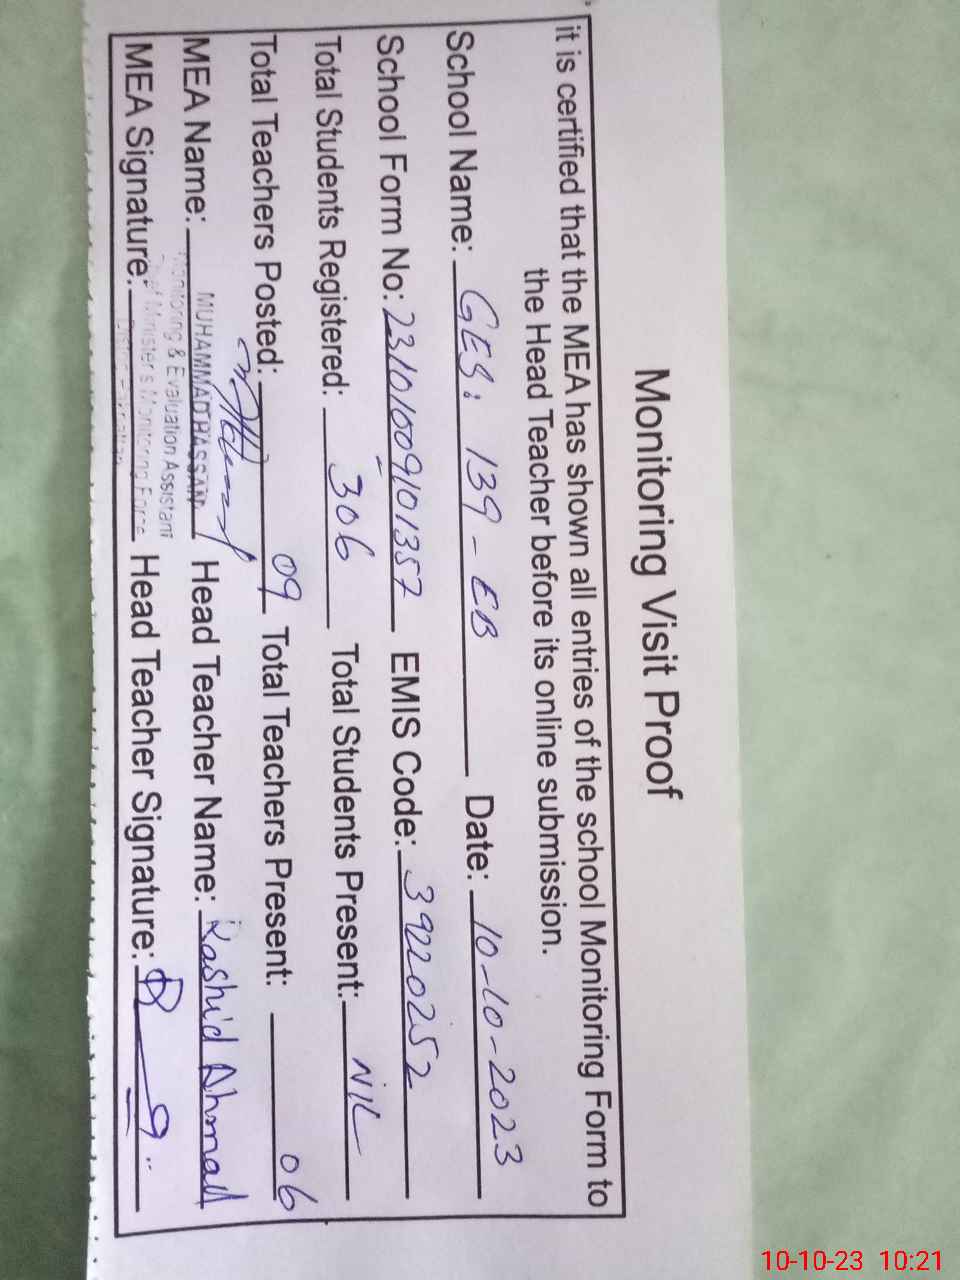 Monitoring Visit Proof
it is certified that the MEA has shown all entries of the school Monitoring Form to
the Head Teacher before its online submission.
School Name: GES: 139-EB Date: 10-10-2023
School Form No: 23101009101357 EMIS Code: 39220252
Total Students Registered: 306 Total Students Present: NIL
Total Teachers Posted: 09 Total Teachers Present: 06
MEA Name: MUHAMMAD HASSAN Head Teacher Name: Rashid Ahmad
Monitoring & Evaluation Assistant
Chief Minister's Monitoring Force
MEA Signature: Head Teacher Signature:
10-10-23 10:21